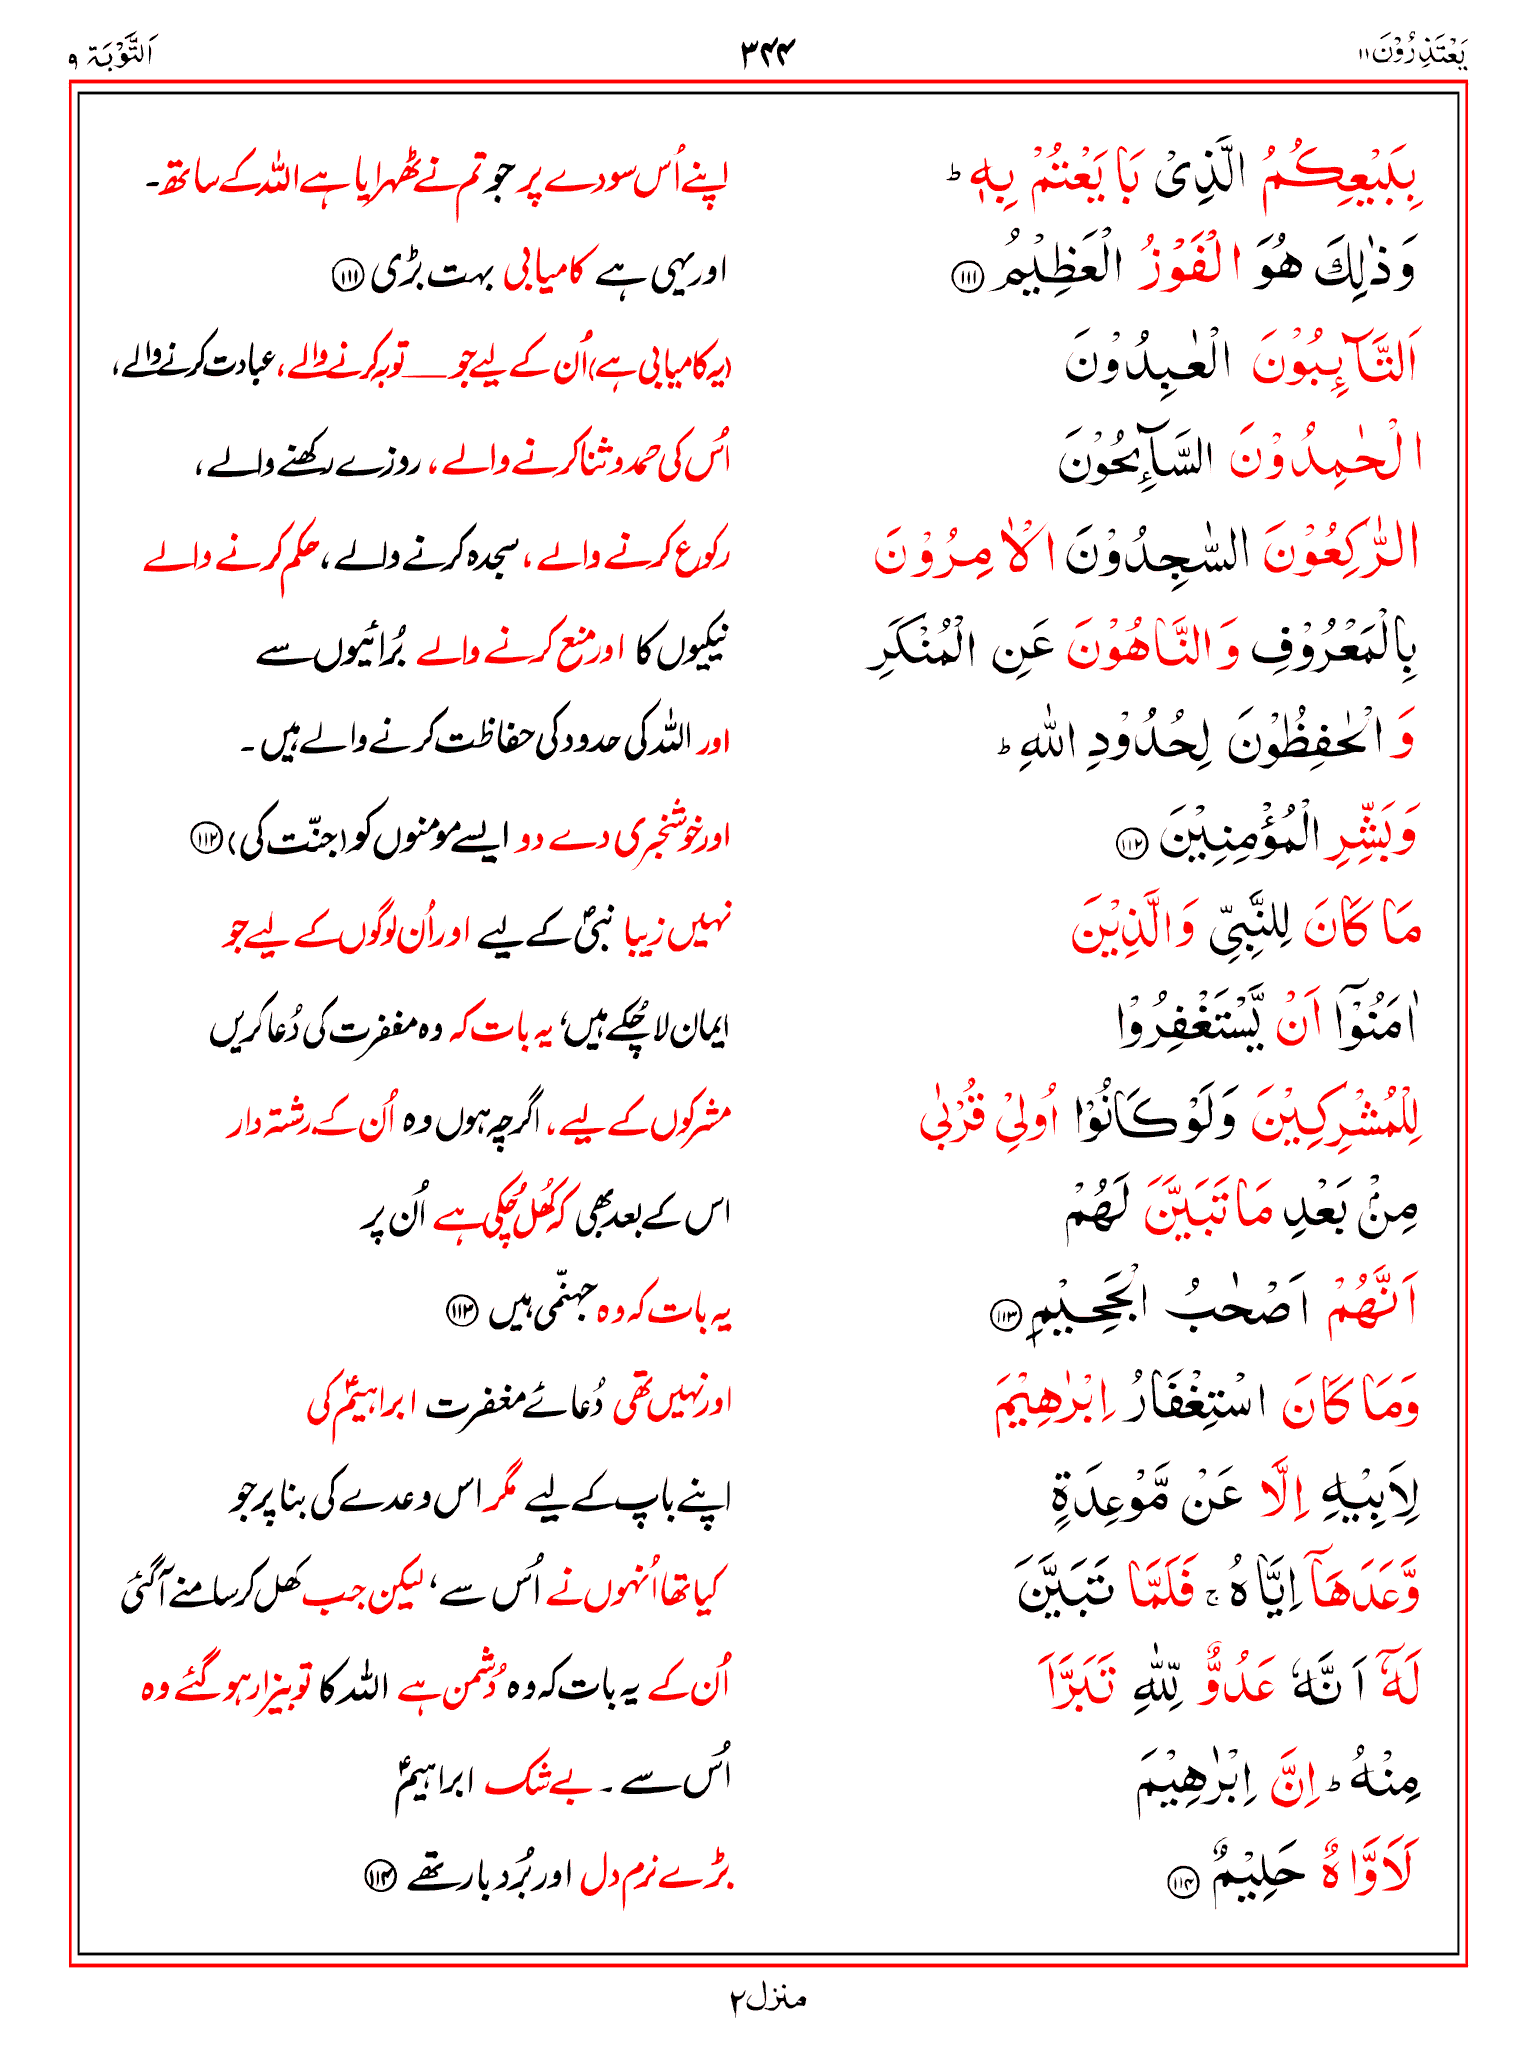 يَعْتَذِرُوْنَ ۱۱
۳۴۴
اَلتَّوْبَة ۹
بِبَيْعِكُمُ الَّذِىْ بَايَعْتُمْ بِهٖ ؕ
اپنے اُس سودے پر جو تم نے ٹھہرایا ہے اللہ کے ساتھ۔
وَذٰلِكَ هُوَ الْفَوْزُ الْعَظِيْمُ ۱۱۱
اور یہی ہے کامیابی بہت بڑی ۱۱۱
اَلتَّآئِبُوْنَ الْعٰبِدُوْنَ
(یہ کامیابی ہے) اُن کے لیے جو ــــ توبہ کرنے والے، عبادت کرنے والے،
الْحٰمِدُوْنَ السَّآئِحُوْنَ
اُس کی حمد و ثنا کرنے والے، روزے رکھنے والے،
الرّٰكِعُوْنَ السّٰجِدُوْنَ الْاٰمِرُوْنَ
رکوع کرنے والے، سجدہ کرنے والے، حکم کرنے والے
بِالْمَعْرُوْفِ وَالنَّاهُوْنَ عَنِ الْمُنْكَرِ
نیکیوں کا اور منع کرنے والے بُرائیوں سے
وَالْحٰفِظُوْنَ لِحُدُوْدِ اللّٰهِ ؕ
اور اللہ کی حدود کی حفاظت کرنے والے ہیں۔
وَبَشِّرِ الْمُؤْمِنِيْنَ ۱۱۲
اور خوشخبری دے دو ایسے مومنوں کو (جنّت کی) ۱۱۲
مَا كَانَ لِلنَّبِىِّ وَالَّذِيْنَ
نہیں زیبا نبیؐ کے لیے اور اُن لوگوں کے لیے جو
اٰمَنُوْٓا اَنْ يَّسْتَغْفِرُوْا
ایمان لا چُکے ہیں، یہ بات کہ وہ مغفرت کی دُعا کریں
لِلْمُشْرِكِيْنَ وَلَوْ كَانُوْٓا اُولِىْ قُرْبٰى
مشرکوں کے لیے، اگرچہ ہوں وہ اُن کے رشتہ دار
مِنْۢ بَعْدِ مَا تَبَيَّنَ لَهُمْ
اس کے بعد بھی کہ کُھل چُکی ہے اُن پر
اَنَّهُمْ اَصْحٰبُ الْجَحِيْمِ ۱۱۳
یہ بات کہ وہ جہنّمی ہیں ۱۱۳
وَمَا كَانَ اسْتِغْفَارُ اِبْرٰهِيْمَ
اور نہیں تھی دُعائے مغفرت ابراہیمؑ کی
لِاَبِيْهِ اِلَّا عَنْ مَّوْعِدَةٍ
اپنے باپ کے لیے مگر اس وعدے کی بنا پر جو
وَّعَدَهَآ اِيَّاهُ ۚ فَلَمَّا تَبَيَّنَ
کیا تھا اُنہوں نے اُس سے، لیکن جب کھل کر سامنے آگئی
لَهٗٓ اَنَّهٗ عَدُوٌّ لِّلّٰهِ تَبَرَّاَ
اُن کے یہ بات کہ وہ دُشمن ہے اللہ کا تو بیزار ہوگئے وہ
مِنْهُ ؕ اِنَّ اِبْرٰهِيْمَ
اُس سے۔ بے شک ابراہیمؑ
لَاَوَّاهٌ حَلِيْمٌ ۱۱۴
بڑے نرم دل اور بُردبار تھے ۱۱۴
منزل ۲